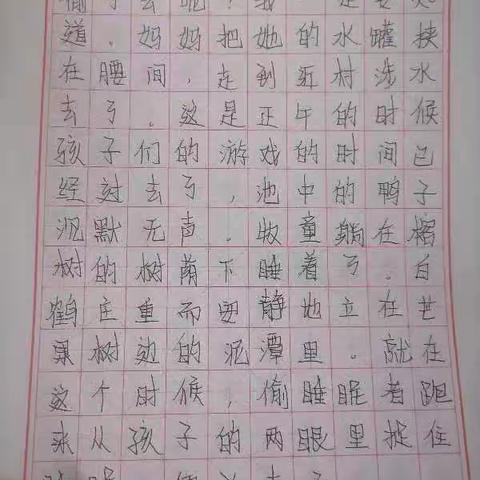 偷了去呢?我一定要知
道。妈妈把她的水罐挟
在腰间,走到近村涉水
去了。这是正午的时候
孩子们的游戏的时间已
经过去了,池中的鸭子
沉默无声。牧童躺在榕
树的树荫下睡着了。白
鹤庄重而安静地立在芒
果树边的泥潭里。就在
这个时候,偷睡眠者跑
来从孩子的两眼里捉住
睡眠,便